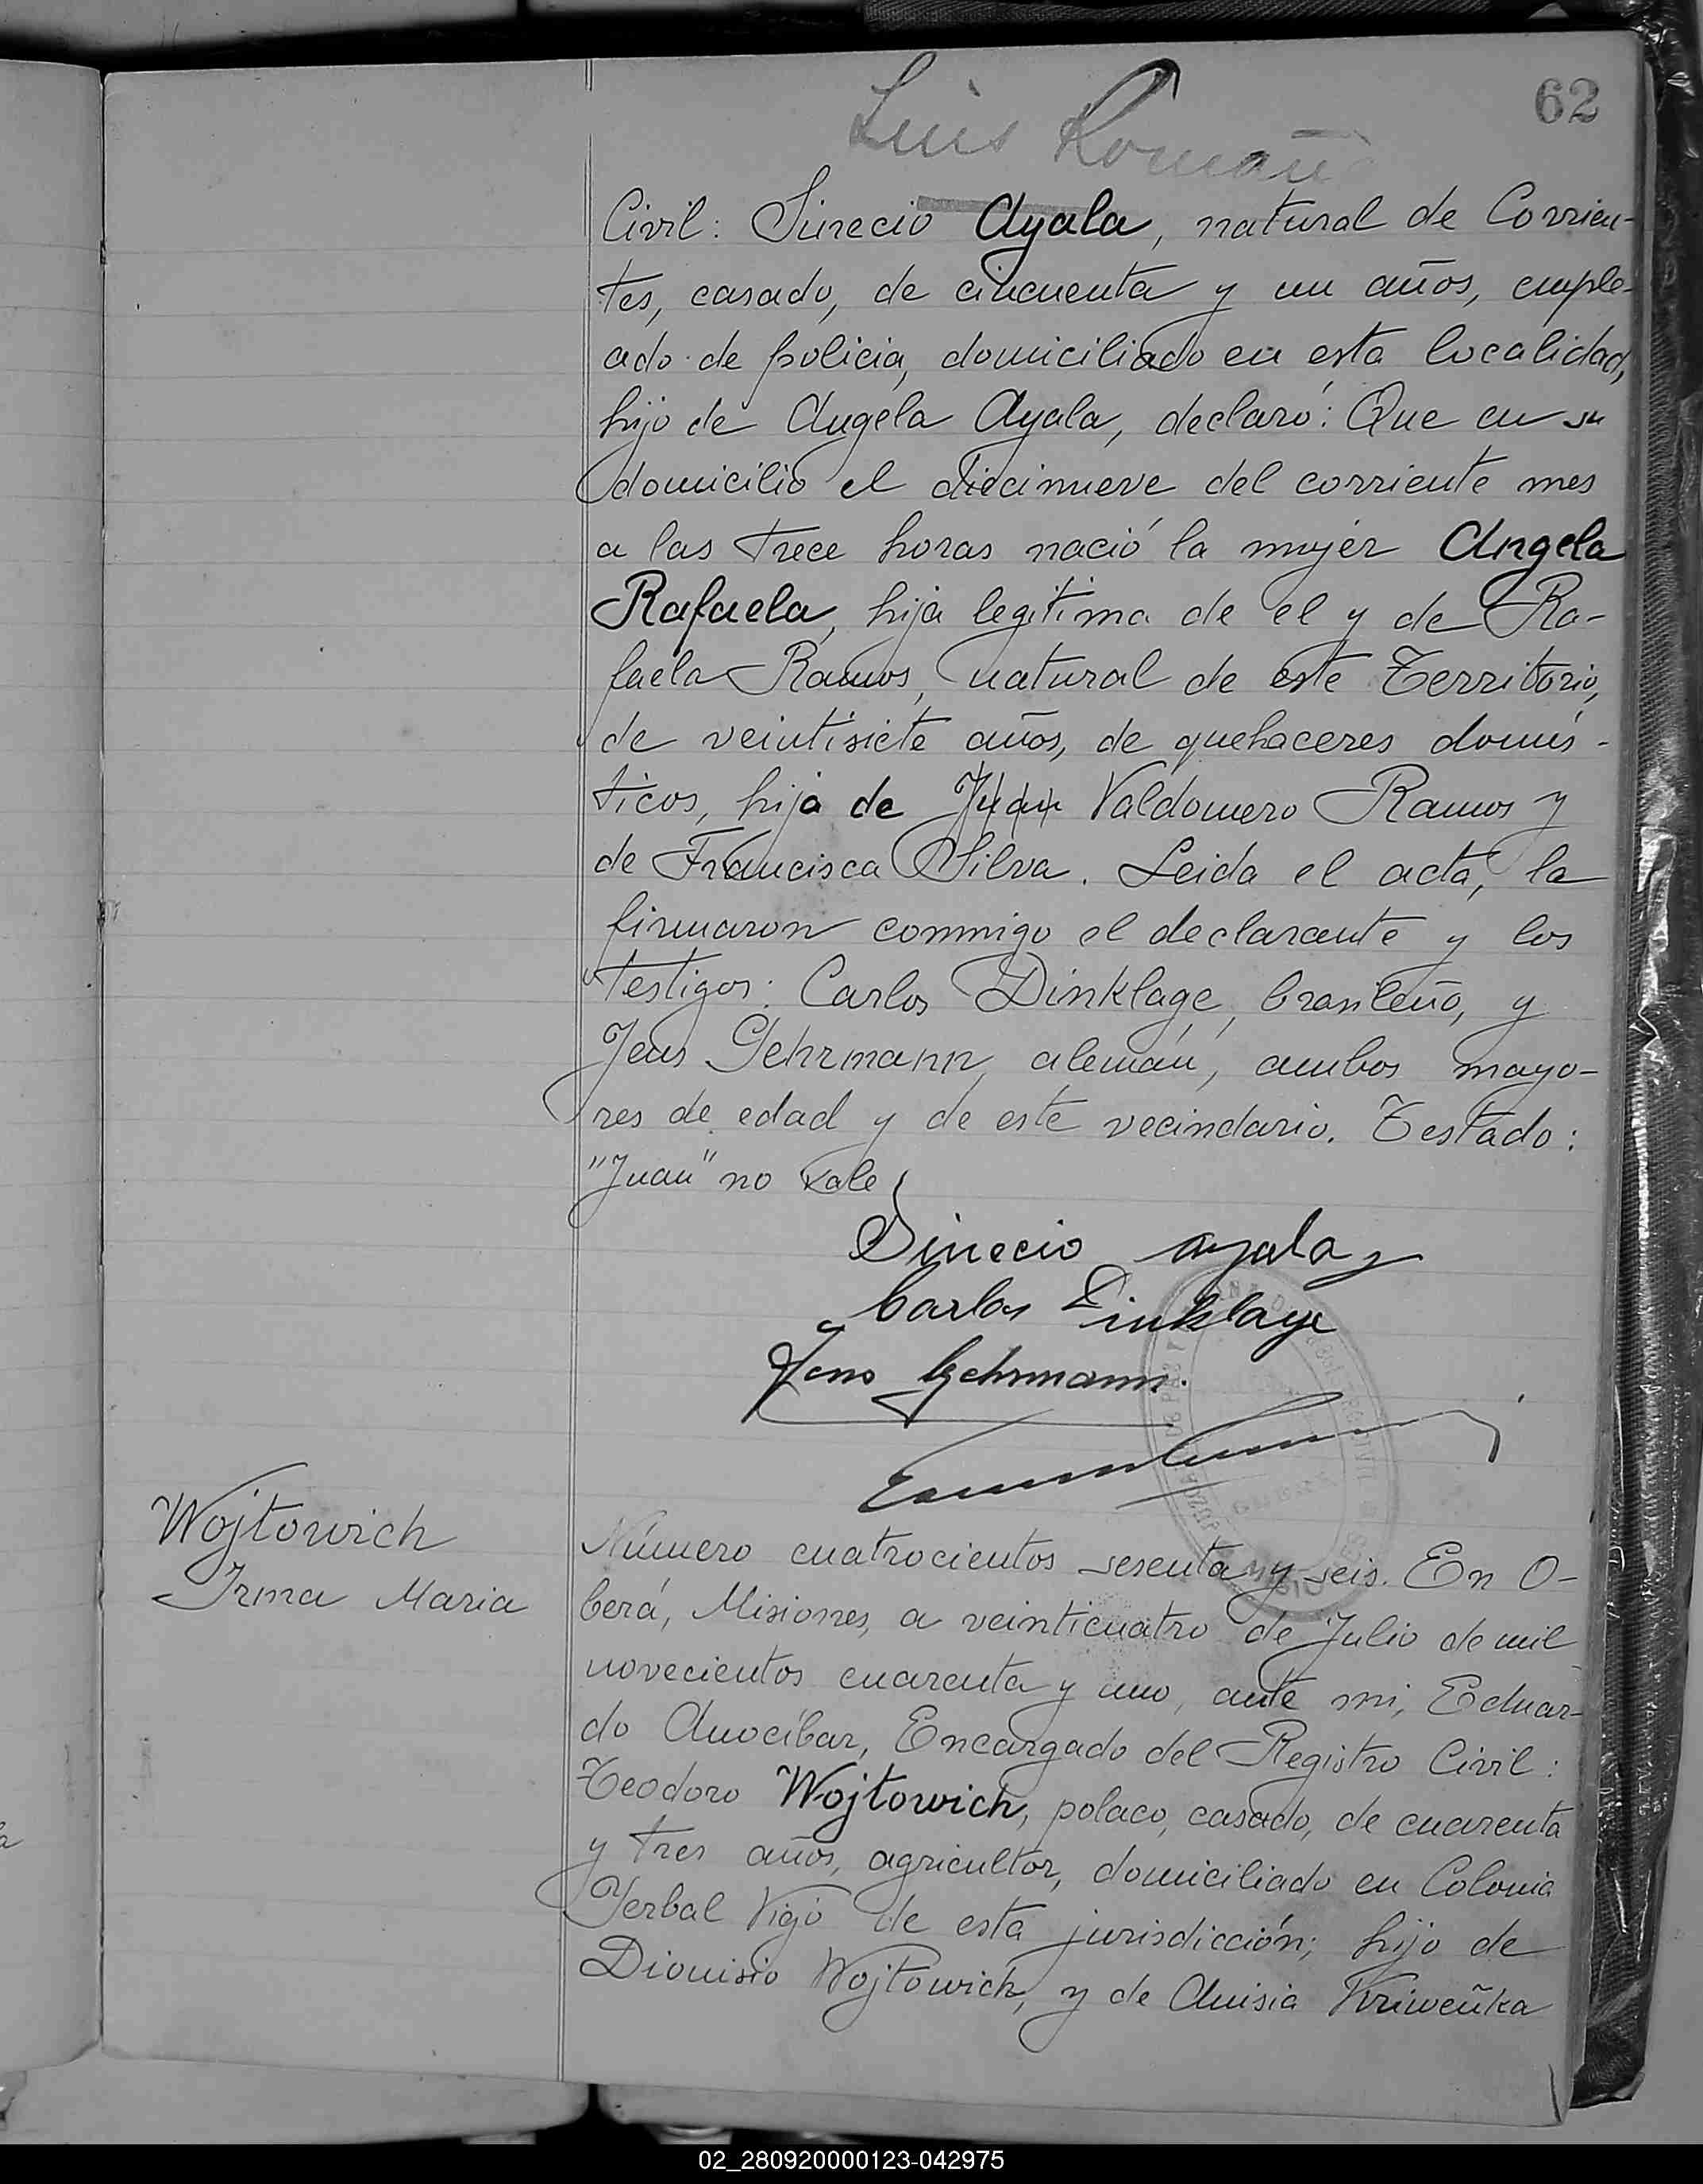 62
Luis Romañ
Civil: Sinecio Ayala, natural de Corrien-
tes, casado, de cincuenta y un años, emple-
ado de policia, domiciliado en esta localidad,
hijo de Angela Ayala, declaró: Que en su
domicilio el diecinueve del corriente mes
a las trece horas nació la mujer Angela
Rafaela, hija legitima de el y de Ra-
faela Ramos, natural de este Territorio,
de veintisiete años, de quehaceres domés-
ticos, hija de Juan Valdomero Ramos y
de Francisca Silva. Leida el acta, la
firmaron conmigo el declarante y los
testigos: Carlos Dinklage, brasileño, y
Jens Gehrmann, alemán, ambos mayo-
res de edad y de este vecindario. Testado:
"Juan" no vale
Sinecio ayala
Carlos Dinklage
Jens Gehrmann.
Wojtowich
Irma Maria
Número cuatrocientos sesenta y seis. En O-
berá, Misiones, a veinticuatro de Julio de mil
novecientos cuarenta y uno, ante mi, Eduar-
do Anocíbar, Encargado del Registro Civil:
Teodoro Wojtowich, polaco, casado, de cuarenta
y tres años, agricultor, domiciliado en Colonia
Yerbal Viejo de esta jurisdicción; hijo de
Dionisio Wojtowich, y de Anisia Kriweñka
02_280920000123-042975